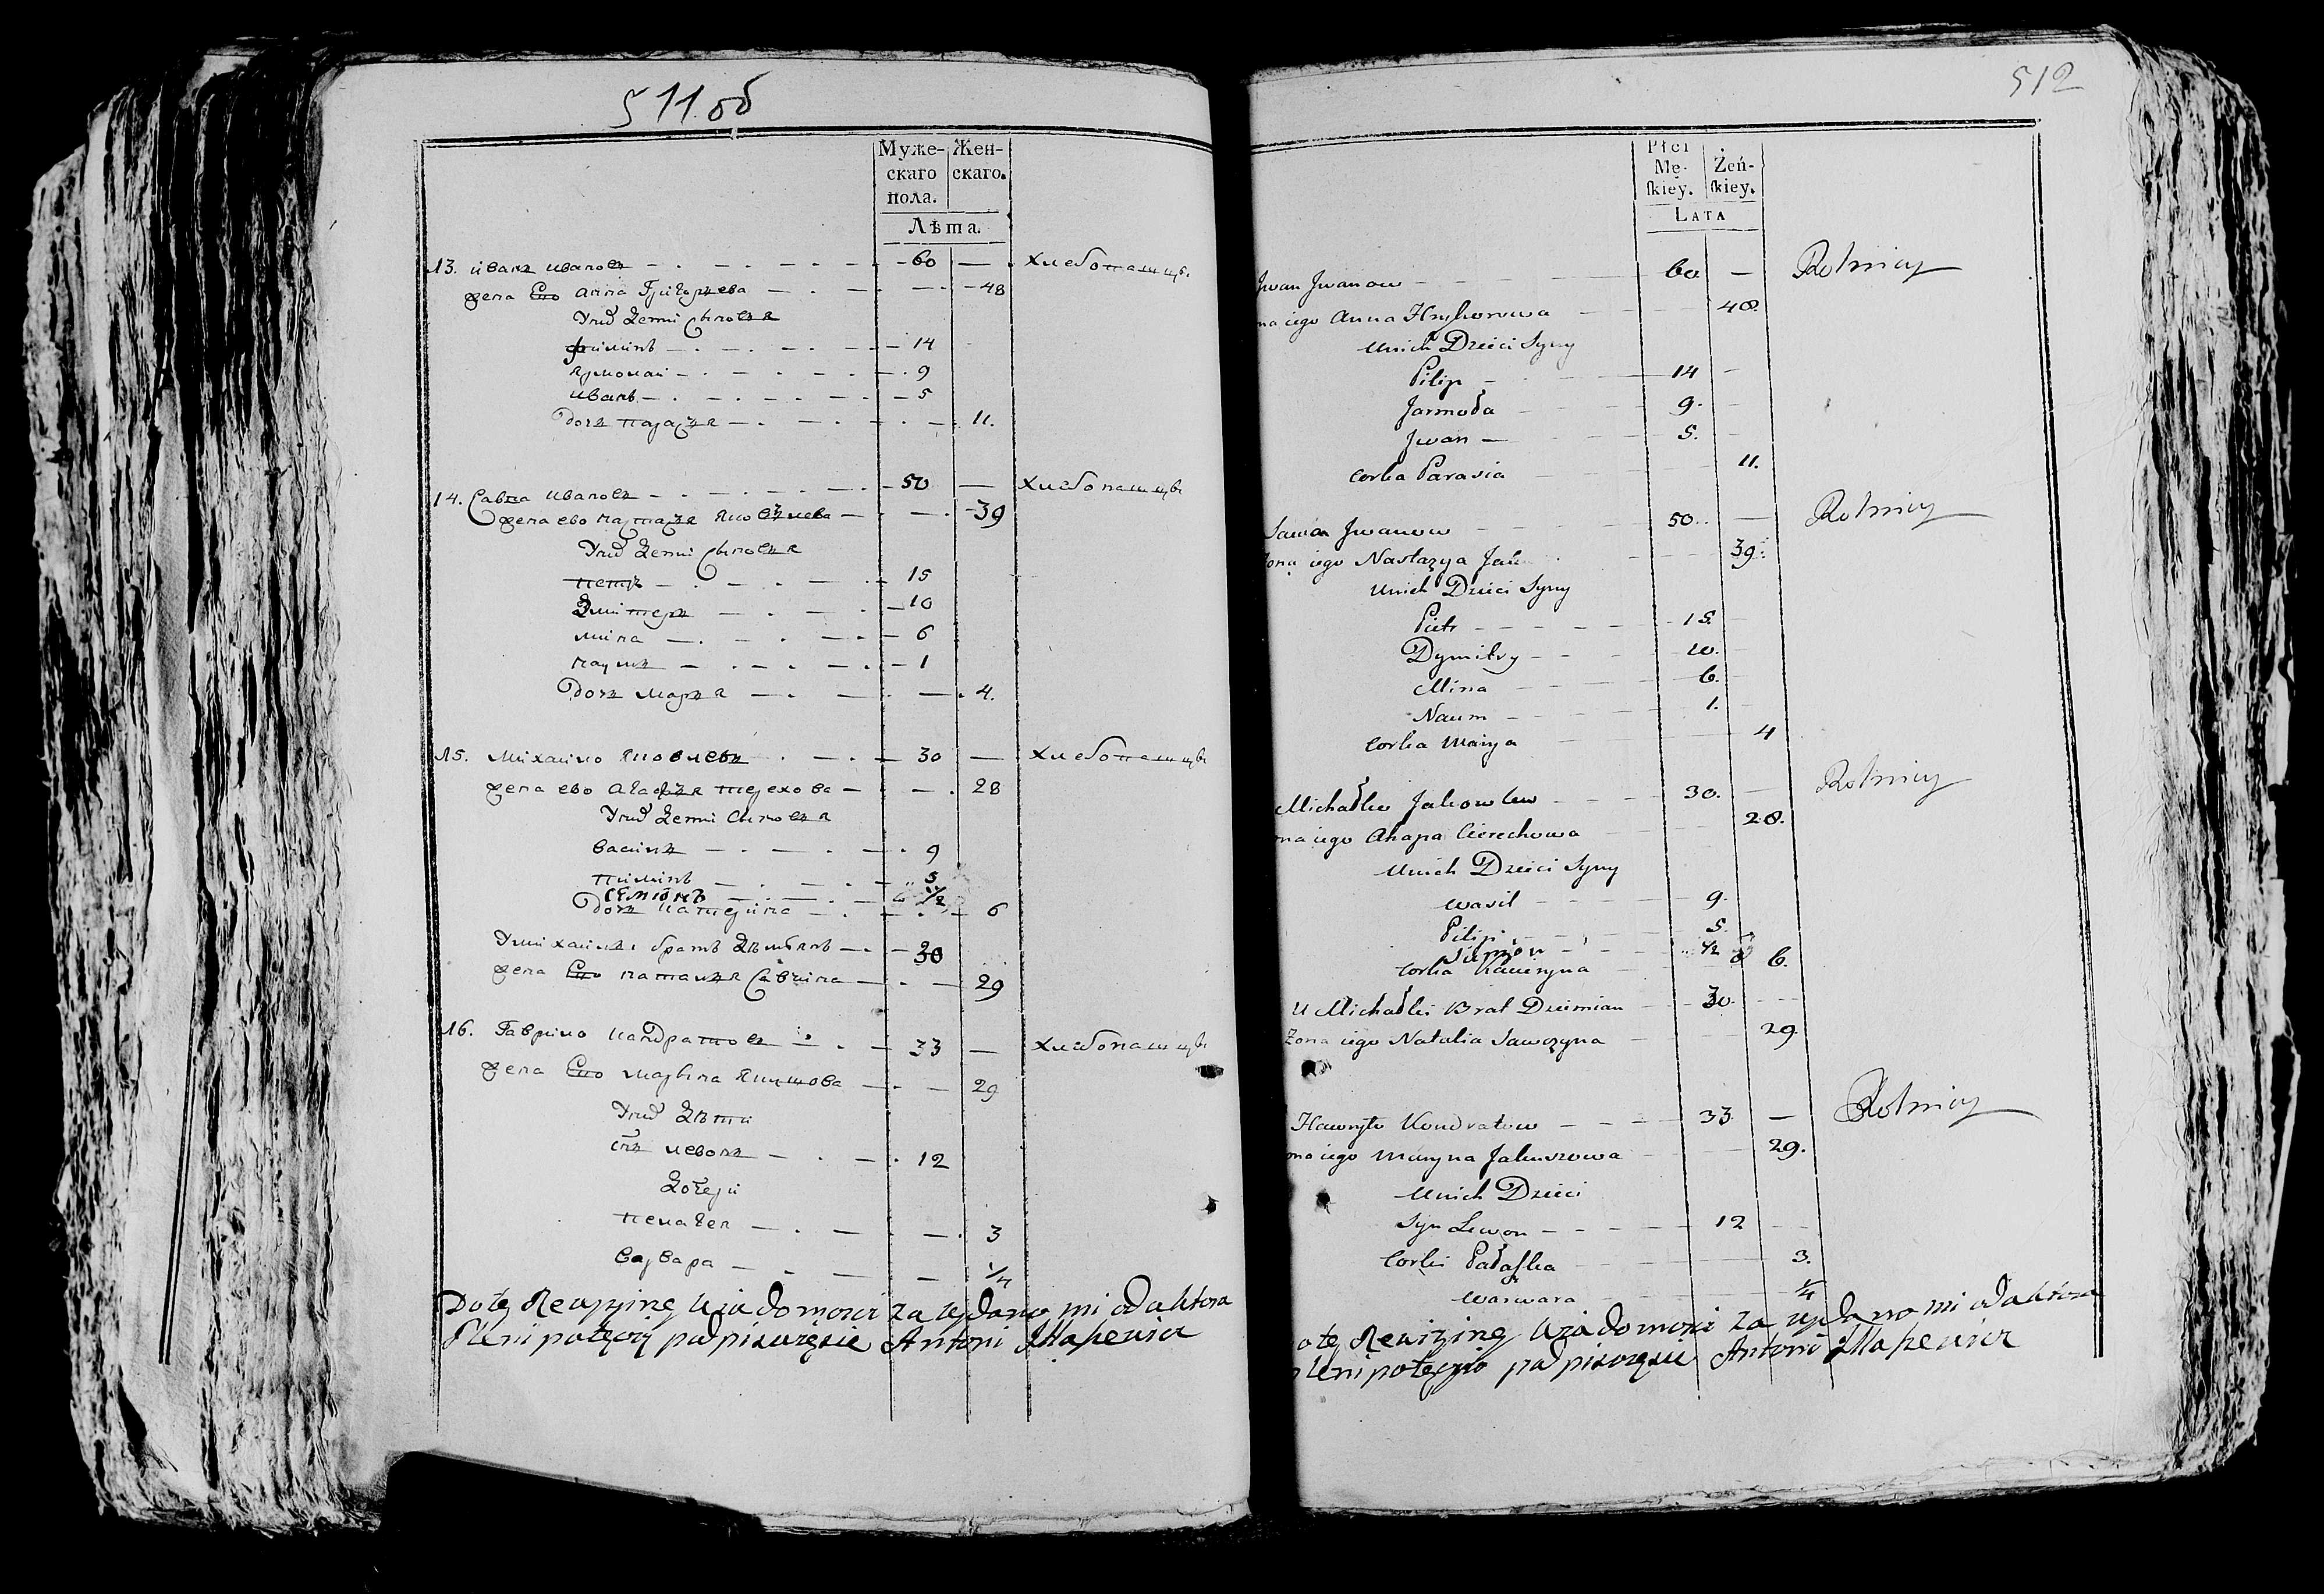 511 об
Муже- Жен-
скаго скаго.
пола.
Лѣта.
13. иванъ ивановъ 60 — хлебопашцъ
жена Его анна Григоръева 48
У них дети Сыновъя
филипъ 14
ярмолаи 9
иванъ 5
дочъ парасъя 11.
14. Савка ивановъ 50 — хлебопашцъ
жена ево настасъя яковълева 39
У них дети Сыновъя
петръ 15
Дмитеръ 10
мина 6
наумъ 1
дочъ маръя 4.
15. михаило яковлевъ 30 — хлебопашцъ
жена ево агафъя терехова 28
У них дети Сыновъя
василъ 9
пилипъ 5
Семіонъ 1/2
дочъ катерина 6
У михаилы братъ демьянъ 30
жена Его наталъя Савчина 29
16. Гаврило кандратовъ 33 — хлебопашцъ
жена Его марына якушова 29
У них дѣти
сн҃ъ левонъ 12
дочери
пелагея 3
варвара 1/4
Do tey Rewizyine wiadomosci za wydano mi od aktora
Plenipotęcyi podpisuręsie Antoni Makewicz
512
Płci
Mę- Żeń-
ſkiey. ſkiey.
LATA
Jwan Jwanow 60 — Rolnicy
na iego Anna Hryhorowa 48.
U nich Dzieci Syny
Pilip 14
Jarmoła 9.
Jwan 5.
Corka Parasia 11.
Sawka Jwanow 50. — Rolnicy
Żona iego Nastazya Jak 39.
U nich Dzieci Syny
Piotr 15.
Dymitry 10.
Mina 6.
Naum 1.
Corka Marya 4
Michałko Jakowlew 30. — Rolnicy
na iego Ahapa Cierechowa 28.
U nich Dzieci Syny
Wasil 9.
Pilip 5.
Siemion 1/2
Corka Kateryna 6.
U Michałki Brat Dziemian 30.
Żona iego Natalia Sawczyna 29.
Hawryło Kondratow 33. — Rolnicy
na iego Maryna Jakuszowa 29.
U nich Dzieci
Syn Lewon 12
Corki Pałaſka 3.
Warwara 1/4
o tey Rewizyiney wiadomosci za wydano mi od aktora
lenipotęcyio podpisuręsie Antoni Makewicz